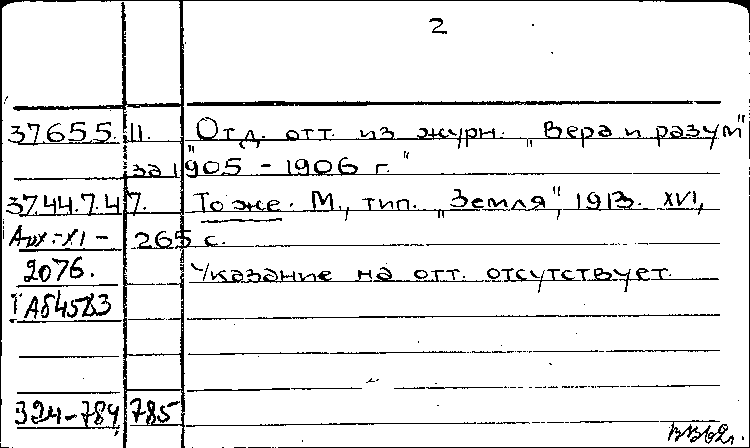 2
37.65.5.11. "Отд. отт. из журн. „Вера и разум"
за 1905 - 1906 г."
37.44.7.47. То же. М., тип. „Земля", 1913. XVI,
Арх.-XI- 265 с.
2076. Указание на отт. отсутствует.
324-784, 785